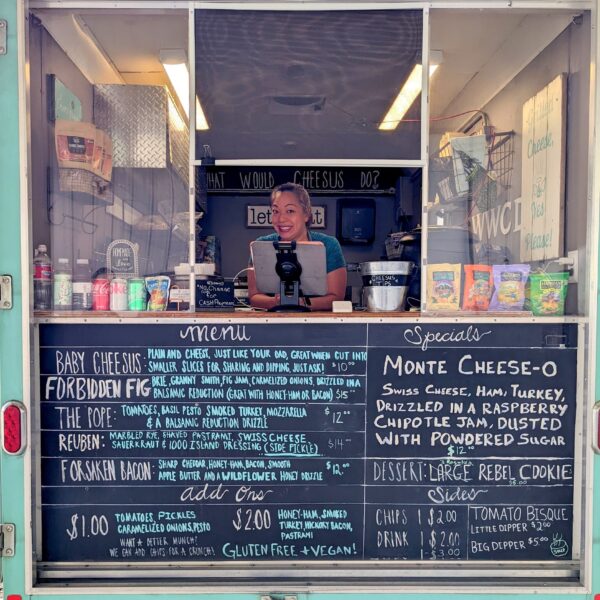 WHAT WOULD CHEESUS DO?
let
at
WWCD
Cheese,
Please!
No Change
CASH
CHEESUS
Menu
BABY CHEESUS: PLAIN AND CHEESY, JUST LIKE YOUR DAD, GREAT WHEN CUT INTO
SMALLER SLICES FOR SHARING AND DIPPING, JUST ASK! $10.00
FORBIDDEN FIG BRIE, GRANNY SMITH, FIG JAM, CARMELIZED ONIONS, DRIZZLED IN A
BALSAMIC REDUCTION (GREAT WITH HONEY-HAM OR BACON) $15.00
THE POPE: TOMATOES, BASIL PESTO SMOKED TURKEY, MOZZARELLA
& A BALSAMIC REDUCTION DRIZZLE $12.00
REUBEN: MARBLED RYE, SHAVED PASTRAMI, SWISS CHEESE
SAUERKRAUT & 1000 ISLAND DRESSING (SIDE PICKLE) $14.00
FORSAKEN BACON: SHARP CHEDDAR, HONEY-HAM, BACON, SMOOTH
APPLE BUTTER AND A WILDFLOWER HONEY DRIZZLE $12.00
Add Ons
$1.00 TOMATOES, PICKLES
CARAMELIZED ONIONS, PESTO
WANT A BETTER MUNCH?
WE CAN ADD CHIPS FOR A CRUNCH!
$2.00 HONEY-HAM, SMOKED
TURKEY, HICKORY BACON,
PASTRAMI
GLUTEN FREE + VEGAN!
Specials
MONTE CHEESE-O
SWISS CHEESE, HAM, TURKEY,
DRIZZLED IN A RASPBERRY
CHIPOTLE JAM, DUSTED
WITH POWDERED SUGAR
$12.00
DESSERT: LARGE REBEL COOKIE
$5.00
Sides
CHIPS | $2.00
DRINK | $2.00
1-$3.00
TOMATO BISQUE
LITTLE DIPPER $2.00
BIG DIPPER $5.00